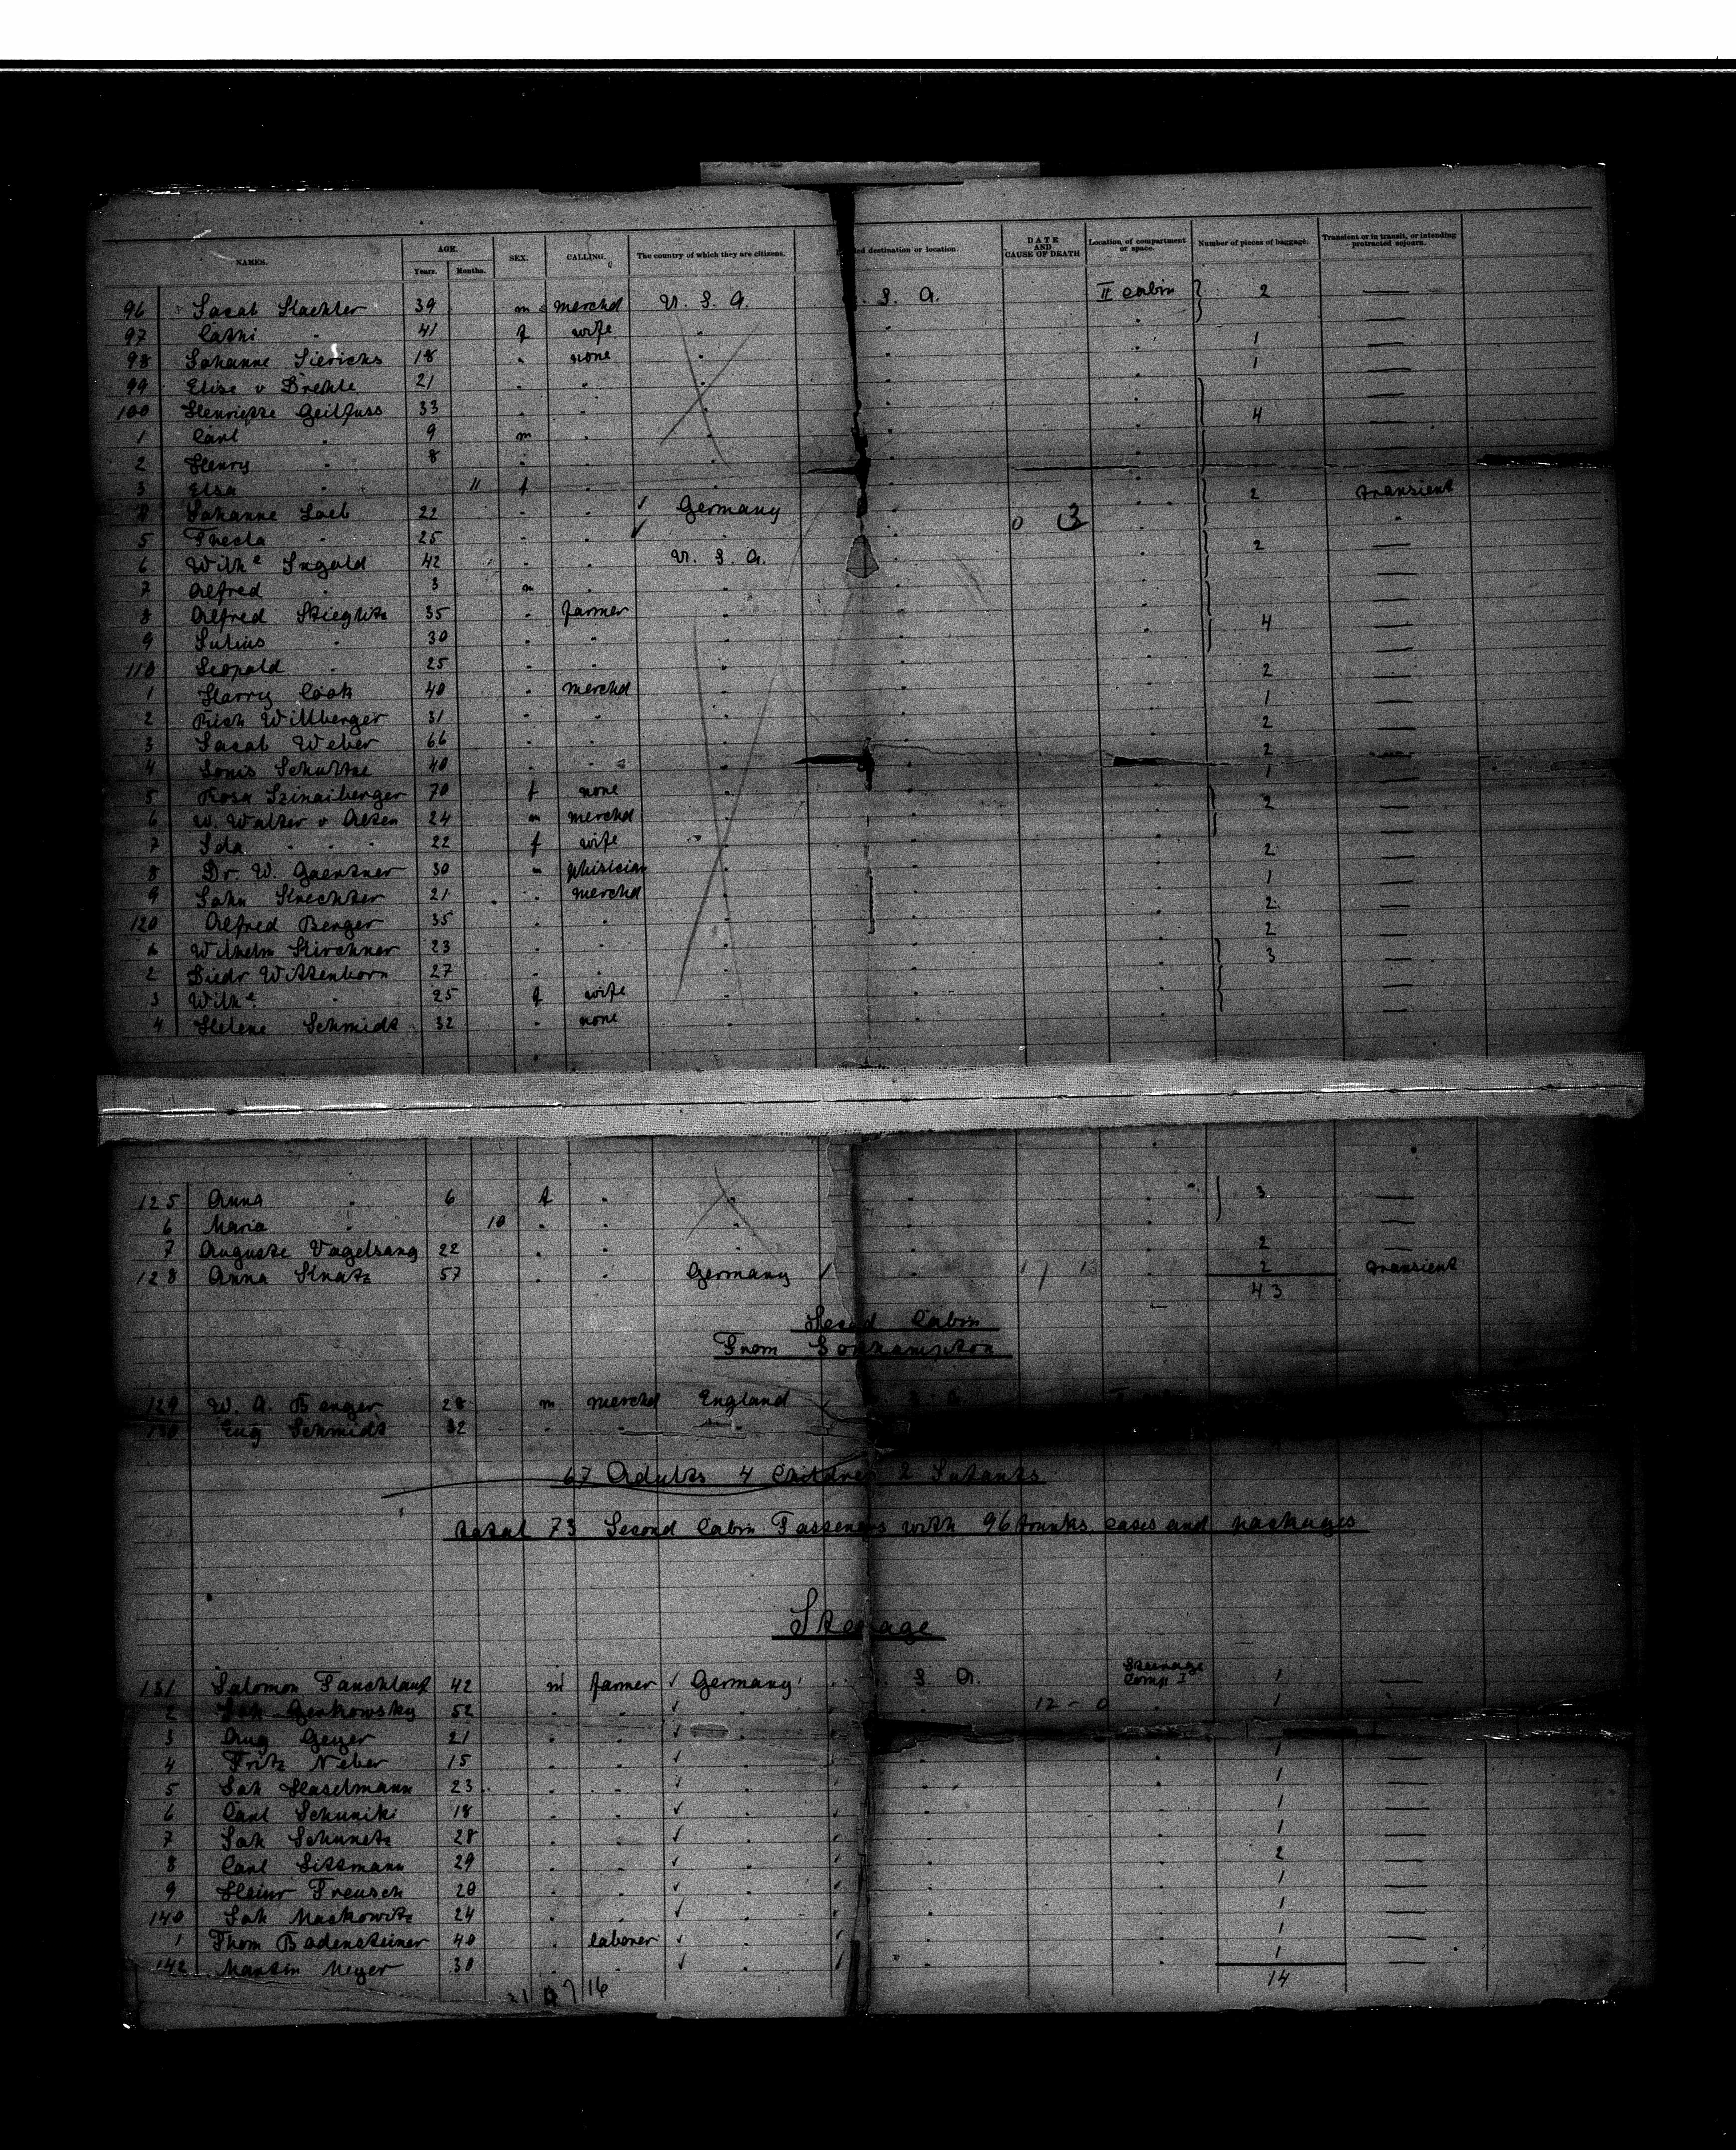 NAMES. AGE. Years. Months. SEX. CALLING. The country of which they are citizens. ed destination or location. DATE AND CAUSE OF DEATH Location of compartment or space. Number of pieces of baggage. Transient or in transit, or intending protracted sojourn.
96 39 m merchd U. S. A. S. A. II cabin 2 —
97 Cathi " 41 f wife " " " —
98 Johanne Sierichs 18 " none " " " 1 —
99 Elise v Drehle 21 " " " " " 1 —
100 Henriette Geilfuss 33 " " " " " —
1 Carl " 9 m " " " " 4 —
2 Henry " 8 " " " " " —
3 Elsa " 11 f " " " " —
Johanne Loeb 22 " " Germany " " 2 transient
5 " 25 " " " " " "
6 Wilhe Ingold 42 " " U. S. A. " " 2 —
7 Alfred " 3 m " " " " —
8 Alfred Stieglitz 35 " farmer " " " —
9 Julius " 30 " " " " " 4 —
110 Leopold " 25 " " " " " —
1 Harry Cook 40 " merchd " " " 2 —
2 Rich Willberger 31 " " " " " 1 —
3 Jacob Weber 66 " " " " " 2 —
4 Louis Schultze 40 " " " " " 2 —
5 Rosa 70 f none " " " 1 —
6 W. Walter v Alten 24 m merchd " " " 2 —
7 Ida " " " 22 f wife " " " —
8 Dr. W. Gaertner 30 m phisician " " " 2 —
9 John Knechter 21 " merchd " " " 1 —
120 Alfred Berger 35 " " " " " 2 —
Wilhelm Kirchner 23 " " " " " 2 —
2 Diedr Wittenborn 27 " " " " " 3 —
3 Wilhe " 25 f wife " " " —
4 Helene Schmidt 32 " none " " " —
125 Anna " 6 f " " " " 3 —
6 Maria " 10 " " " " " —
7 Auguste Vogelsang 22 " " " " " 2 —
128 Anna Knatz 57 " " Germany " " 2 transient
43
Second Cabin
From Southampton
129 W. A. Banger 28 m merchd England S. A.
130 Eug Schmidt 32 " " "
67 Adults 4 Children 2 Infants
total 73 Second Cabin Passengers with 96 trunks cases and packages
Steerage
131 Salomon 42 m farmer Germany S. A. Steerage Comp I 1 —
2 Gerkowsky 52 " " " " 12 - 0 " 1 —
3 Aug Geyer 21 " " " "
4 Fritz Neber 15 " " " " " 1 —
5 Joh Haselmann 23 " " " " " 1 —
6 Carl Schuniki 18 " " " " " 1 —
7 Joh Schunetz 28 " " " " " 1 —
8 Carl Sittmann 29 " " " " " 2 —
9 Heinr Preusch 20 " " " " " 1 —
140 Joh Maskowitz 24 " " " " " 1 —
1 Thom Badensteiner 40 " laborer " " " 1 —
142 Martin Meyer 30 " " " " " 1 —
14